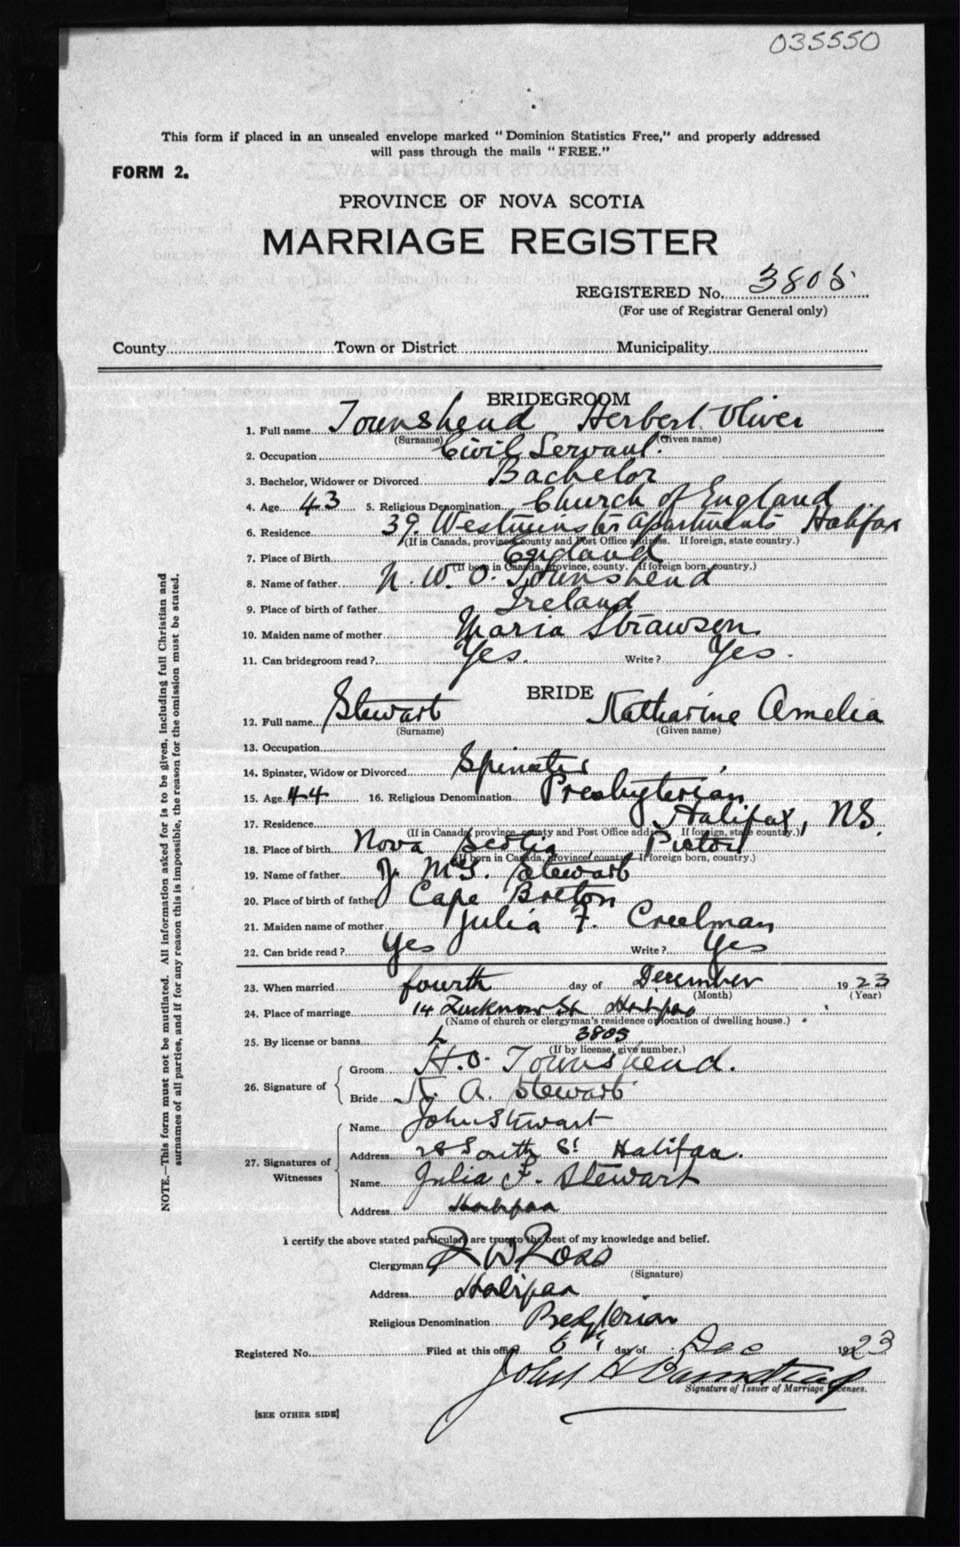 035550
This form if placed in an unsealed envelope marked "Dominion Statistics Free," and properly addressed
will pass through the mails "FREE."
FORM 2.
PROVINCE OF NOVA SCOTIA
MARRIAGE REGISTER
REGISTERED No. 3805
(For use of Registrar General only)
County Town or District Municipality
BRIDEGROOM
1. Full name Townshend Herbert Oliver
(Surname) (Given name)
2. Occupation Civil Servant.
3. Bachelor, Widower or Divorced Bachelor
4. Age 43 5. Religious Denomination Church of England
6. Residence 39. Westminster Apartments Halifax
(If in Canada, province, county and Post Office address. If foreign, state country.)
7. Place of Birth England
(If born in Canada, province, county. If foreign born, country.)
8. Name of father N. W. O. Townshend
9. Place of birth of father Ireland
10. Maiden name of mother Maria Strawson
11. Can bridegroom read? Yes. Write? Yes.
BRIDE
12. Full name Stewart Katharine Amelia
(Surname) (Given name)
13. Occupation
14. Spinster, Widow or Divorced Spinster
15. Age 44 16. Religious Denomination Presbyterian
17. Residence Halifax, NS.
(If in Canada, province, county and Post Office address. If foreign, state country.)
18. Place of birth Nova Scotia Pictou
(If born in Canada, province, county. If foreign born, country.)
19. Name of father J. McG. Stewart
20. Place of birth of father Cape Breton
21. Maiden name of mother Julia F. Creelman
22. Can bride read? Yes Write? Yes
23. When married fourth day of December 1923
(Month) (Year)
24. Place of marriage 14 Lucknow St Halifax
(Name of church or clergyman's residence or location of dwelling house.)
25. By license or banns L 3805
(If by license, give number.)
26. Signature of
Groom H. O. Townshend.
Bride K. A. Stewart
27. Signatures of Witnesses
Name John Stewart
Address 28 South St Halifax.
Name Julia F. Stewart
Address Halifax
I certify the above stated particulars are true to the best of my knowledge and belief.
Clergyman Ross
(Signature)
Address Halifax
Religious Denomination Presbyterian
Registered No. Filed at this office 6th day of Dec 1923
John H Barnstead
Signature of Issuer of Marriage Licenses.
[SEE OTHER SIDE]
NOTE.—This form must not be mutilated. All information asked for is to be given, including full Christian and
surnames of all parties, and if for any reason this is impossible, the reason for the omission must be stated.